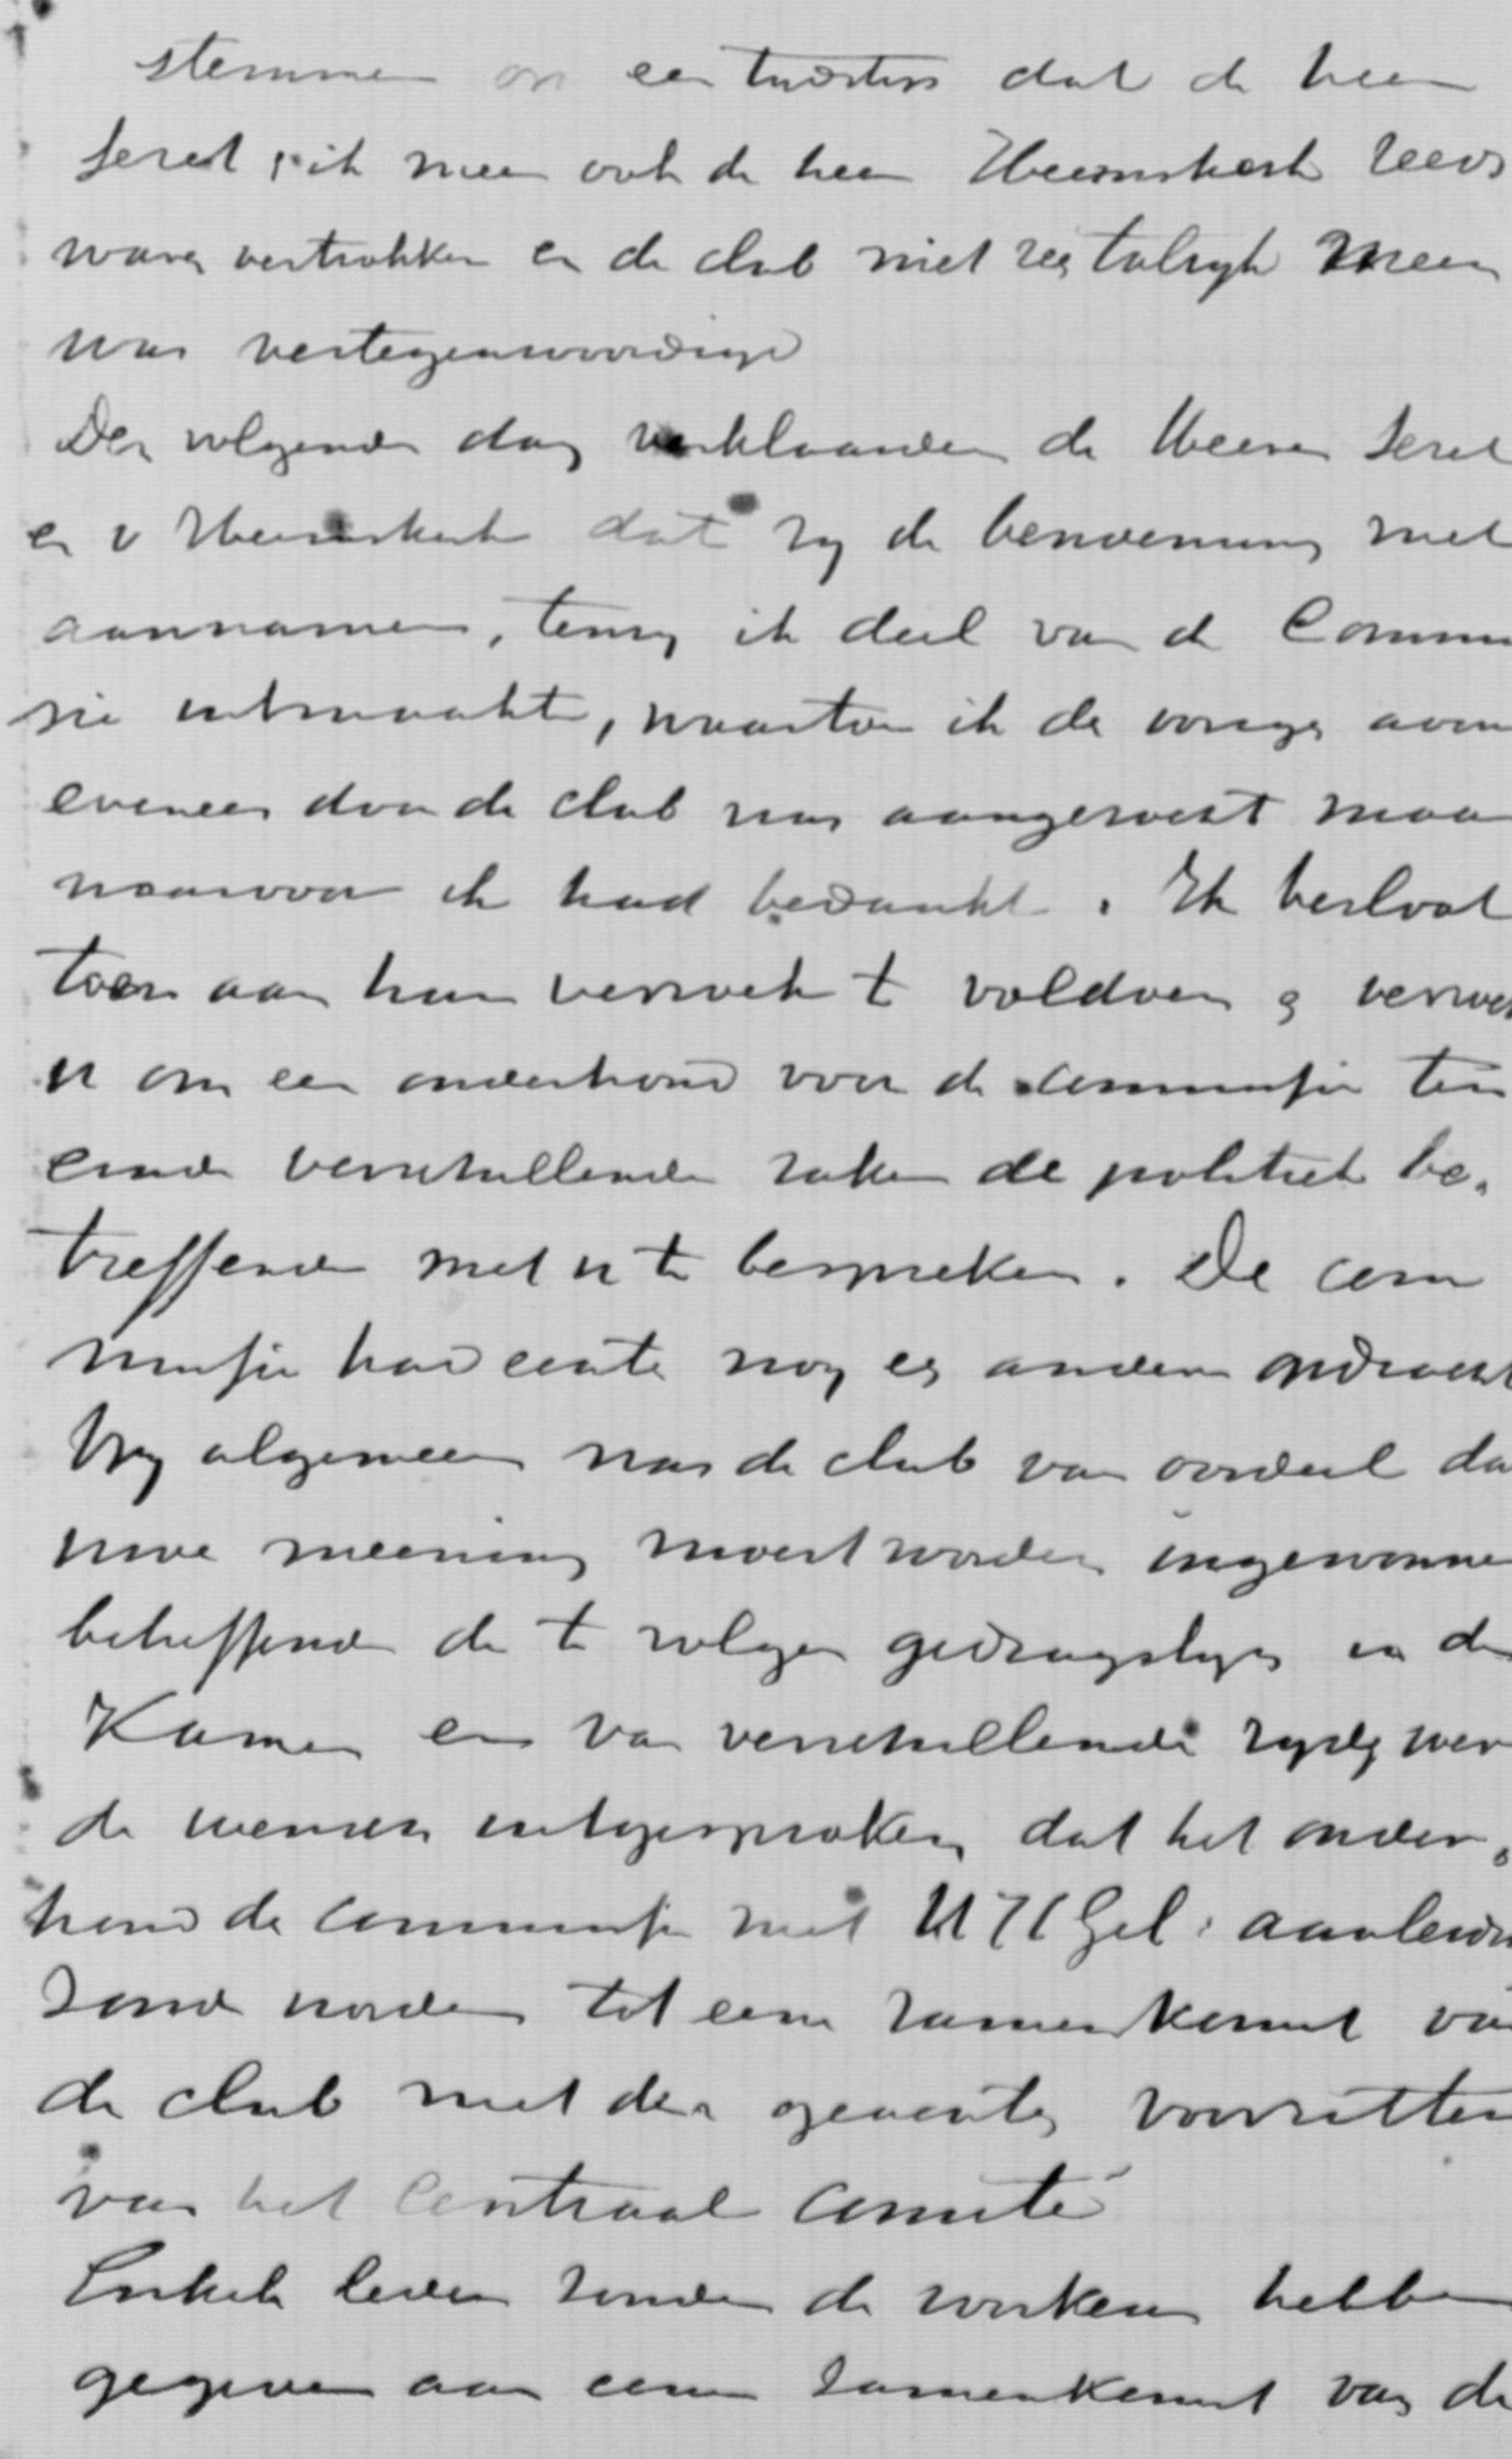 stemmen en een twisten dat de heer
Seret, ik meen ook de heer Heemskerk reeds
waren vertrokken en de club niet zeer talryk meer
was vertegenwoordigd
Den volgenden dag verklaarden de Heeren Seret
en v Heemskerk dat zy de benoeming niet
aannamen, tenzy ik deel van de Commis
sie uitmaakte, waartoe ik de vorige avond
eveneens door de club was aangezocht maar
waarvoor ik had bedankt. Ik besloot
toen aan hun verzoek te voldoen en verzoek
u om een onderhoud voor de commissie ten
einde verschillende zaken de politiek be-
treffende met u te bespreken. De com
missie had echter nog een andere opdracht
Vry algemeen was de club van oordeel dat
uwe meening moest worden ingewonnen
betreffende de te volgen gedragslyn in de
Kamer en van verschillende zyden werd
de wensch uitgesproken dat het onder-
houd de commissie met UHGel: aanleiding
zoude worden tot eene zamenkomst van
de club met den geachten voorzitter
van het Centraal Comité
Enkele leden zouden de voorkeur hebben
gegeven aan eene zamenkomst van de